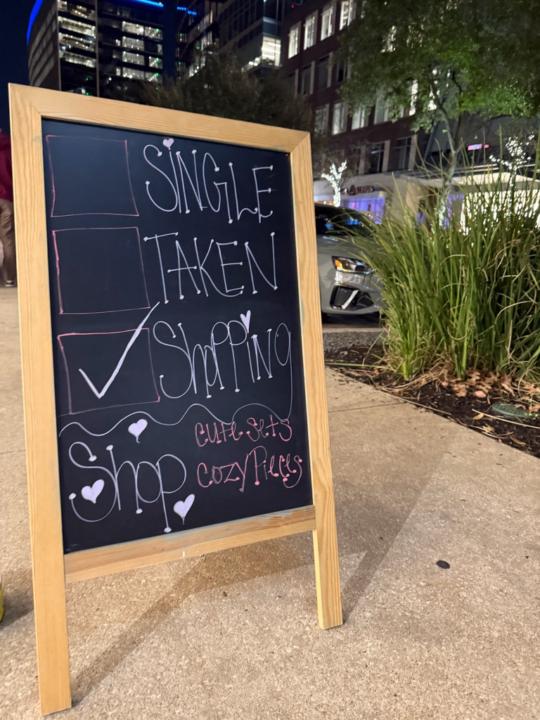 SINGLE
TAKEN
✓ ShoPPiNG
Shop
cute sets
cozy Pieces